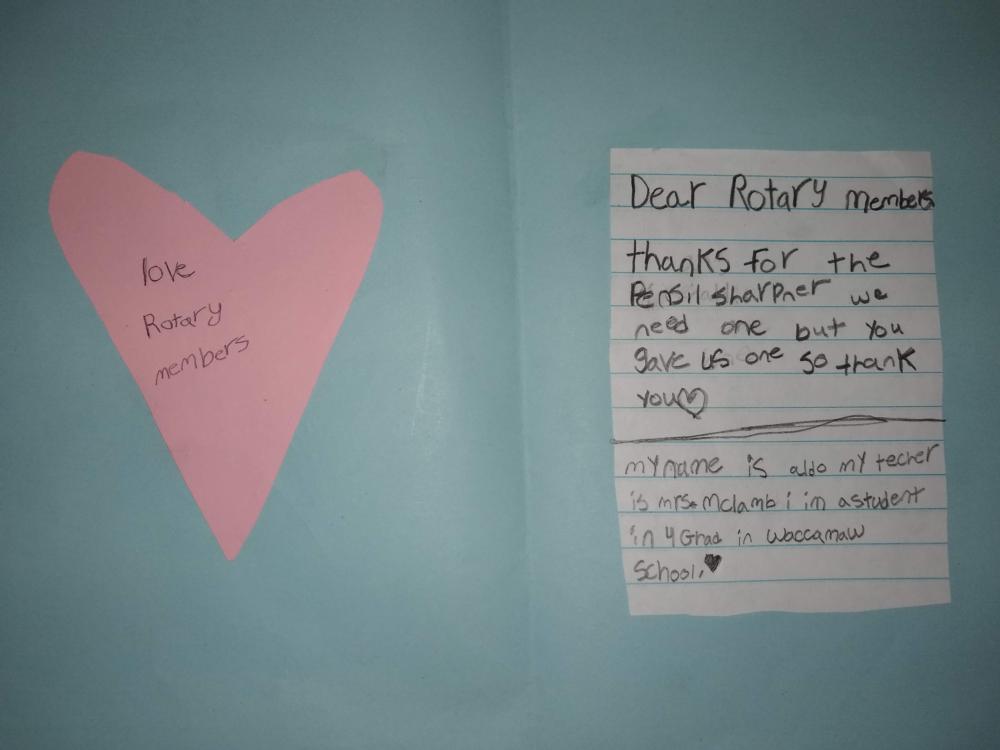 love
Rotary
members
Dear Rotary members
thanks for the
Pensil sharpner we
need one but you
gave us one so thank
you
my name is aldo my techer
is mrs. Mclamb i im a student
in 4 Grad in waccamaw
School.